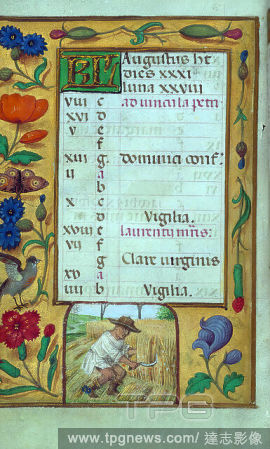 KL Augustus het
dies xxxi
luna xxviii
viii c ad vincula petri
xvi d
v e
f
xiii g dominici conf.
ii a
b
x c
d Vigilia.
xviii e laurentij mris:
vii f
g Clare virginis
xv a
iiii b Vigilia.
TPG
www.tpgnews.com/ 達志影像